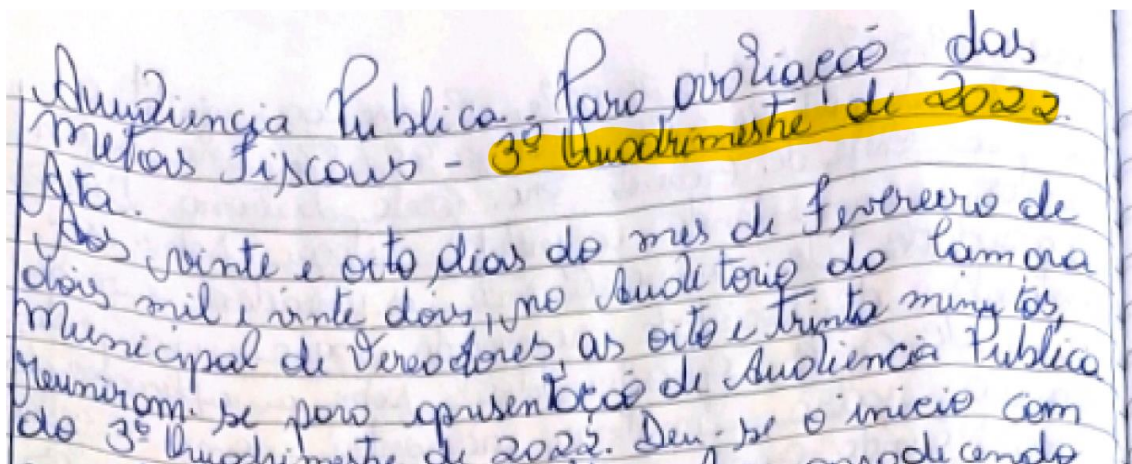 Audiencia Publica. Para avaliação das
metas Fiscais - 3º Quadrimestre de 2022.
Ata.
Aos vinte e oito dias do mes de Fevereiro de
dois mil e vinte dois, no Auditorio da Camara
Municipal de Vereadores, as oito e trinta minutos,
reuniram-se para apresentação de Audiencia Publica
do 3º Quadrimestre de 2022. Deu-se o inicio com